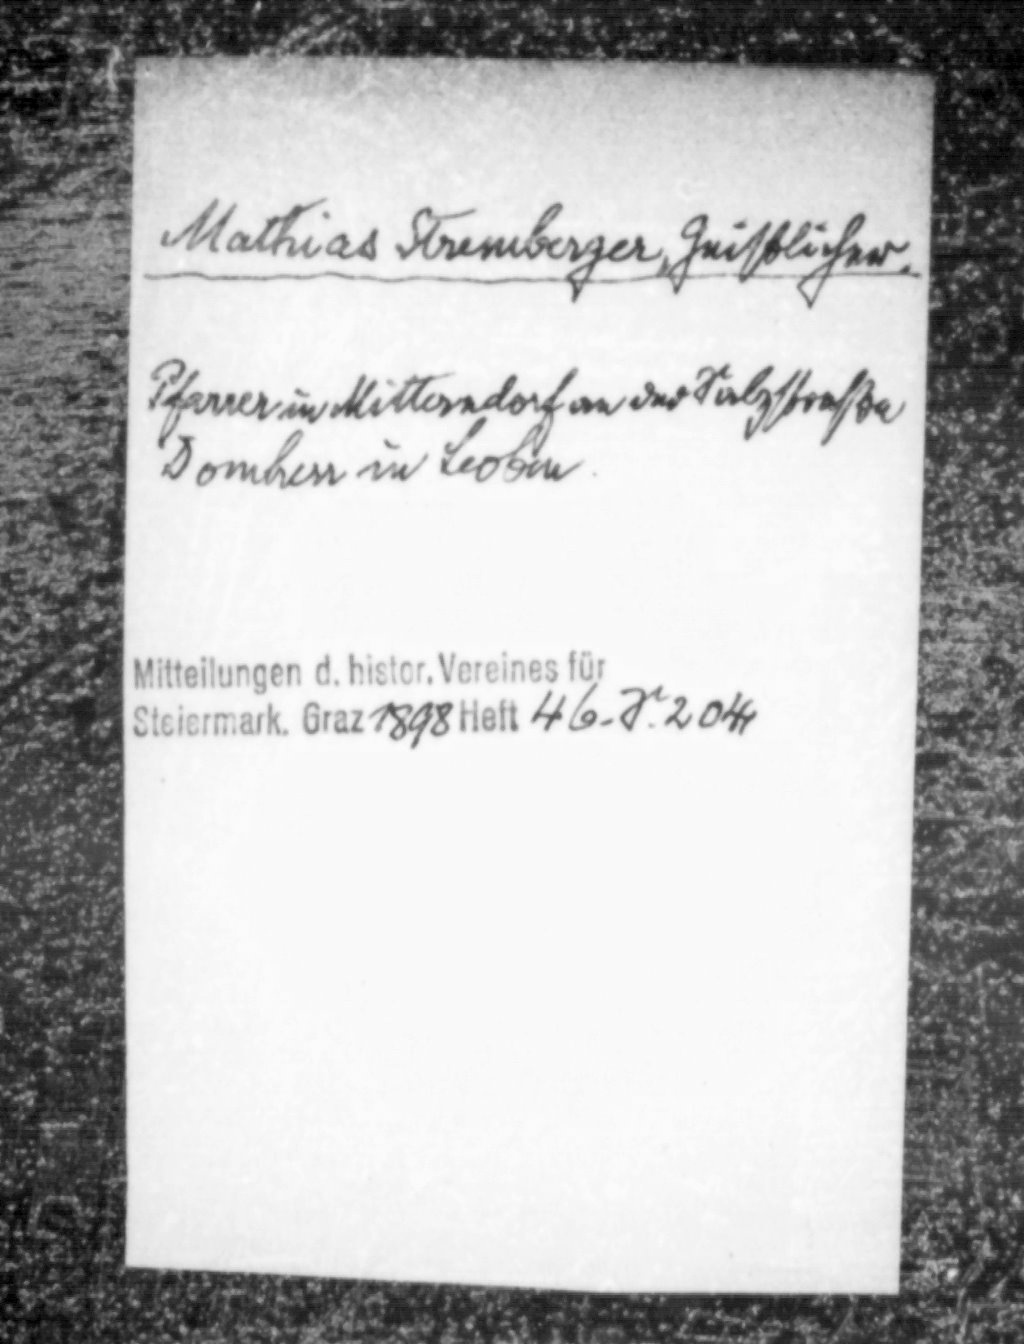 Mathias Stremberger, Geistlicher.
Pfarrer in Mitterndorf an der Salzstraße
Domherr in Leoben.
Mitteilungen d. histor. Vereines für
Steiermark. Graz 1898 Heft 46. S. 204